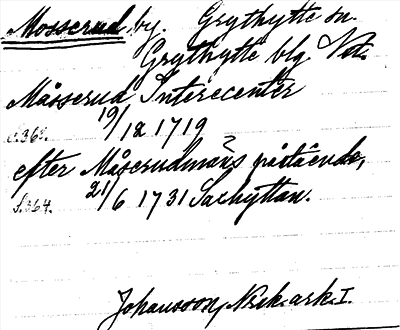 Mosserud by. Grythytte sn.
Grythytte blg Vstm.
Måsserud Interecenter
s.36². 19/12 1719
efter Måserudmans påstående,
s.364. 21/6 1731 Saxhyttan.
Johansson, Nork.ark.I.